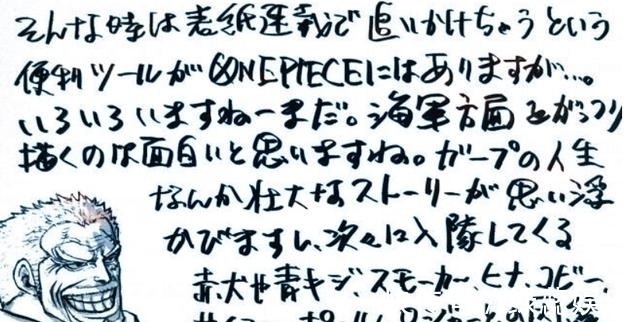 そんな時は表紙連載で追いかけちゃうという
便利ツールがONE PIECEにはありますが…。
いろいろいますねーまだ。海軍方面をがっつり
描くのは面白いと思いますね。ガープの人生
なんか壮大なストーリーが思い浮
かびますし、次々に入隊してくる
赤犬や青キジ、スモーカー、ヒナ、コビー、